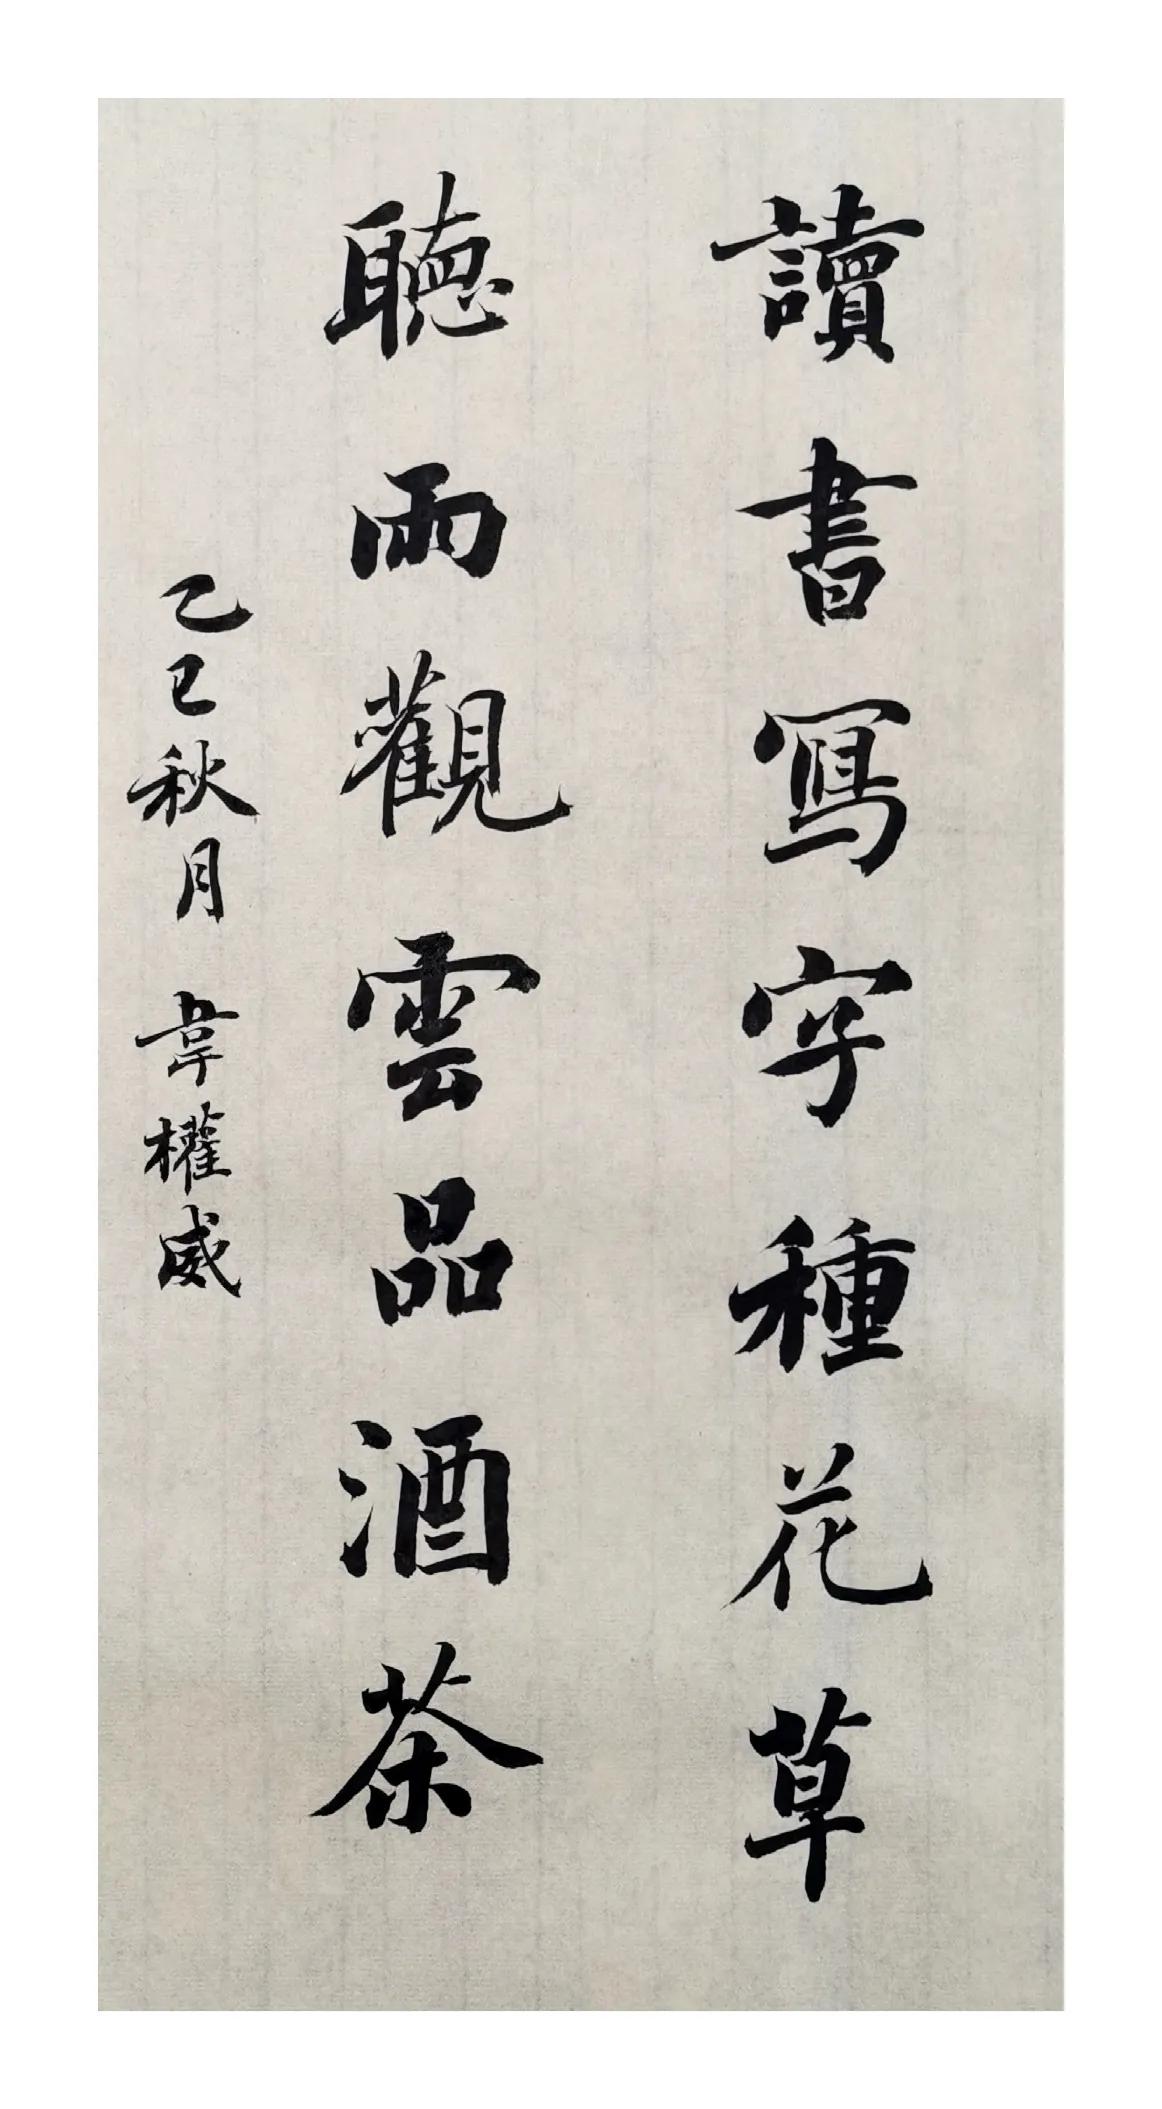 讀書寫字種花草
聽雨觀雲品酒茶
乙巳秋月 韋權威